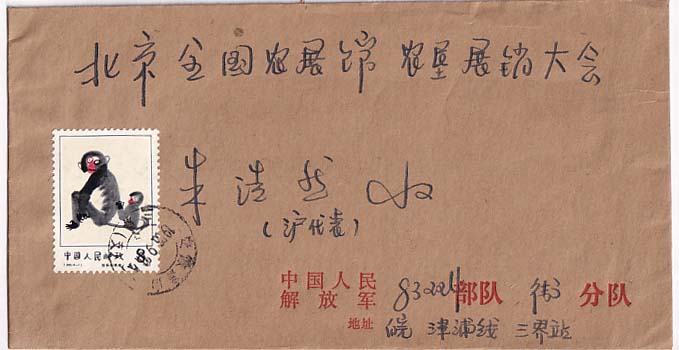 北京全国农展馆 农垦展销大会
朱浩然 收
(沪代表)
中国人民邮政 8分
中国人民
解放军 83224 部队 卫 分队
地址 皖 津浦线 三界站